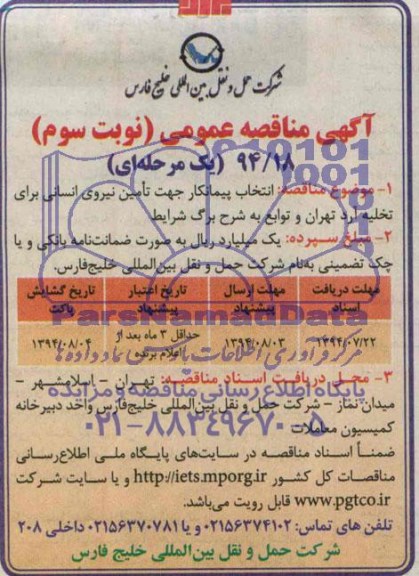 شرکت حمل و نقل بین‌المللی خلیج فارس
آگهی مناقصه عمومی (نوبت سوم)
۹۴/۱۸ (یک مرحله‌ای)
۱- موضوع مناقصه: انتخاب پیمانکار جهت تأمین نیروی انسانی برای
تخلیه آرد تهران و توابع به شرح برگ شرایط
۲- مبلغ سپرده: یک میلیارد ریال به صورت ضمانت‌نامه بانکی و یا
چک تضمینی به‌نام شرکت حمل و نقل بین‌المللی خلیج‌فارس.
مهلت دریافت اسناد
مهلت ارسال پیشنهاد
تاریخ اعتبار پیشنهاد
تاریخ گشایش پاکت
۱۳۹۴/۰۷/۲۲
۱۳۹۴/۰۸/۰۳
حداقل ۳ ماه بعد از اعلام برنده
۱۳۹۴/۰۸/۰۴
ParsNamadData
مرکز فرآوری اطلاعات پارس نماد داده‌ها
۳- محل دریافت اسناد مناقصه: تهران - اسلامشهر -
پایگاه اطلاع رسانی مناقصه و مزایده
میدان نماز - شرکت حمل و نقل بین‌المللی خلیج‌فارس واحد دبیرخانه
کمیسیون معاملات
۰۲۱-۸۸۳۴۹۶۷۰-۵
ضمناً اسناد مناقصه در سایت‌های پایگاه ملی اطلاع‌رسانی
مناقصات کل کشور http://iets.mporg.ir و یا سایت شرکت
www.pgtco.ir قابل رویت می‌باشد.
تلفن های تماس: ۰۲۱۵۶۳۷۴۱۰۲ و یا ۰۲۱۵۶۳۷۰۷۸۱ داخلی ۲۰۸
شرکت حمل و نقل بین‌المللی خلیج فارس